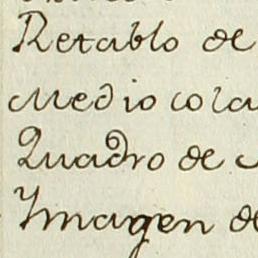 Retablo de
Medio cola
Quadro de
Ymagen de